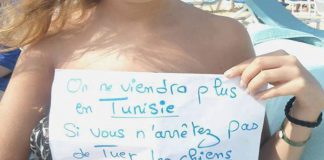 On ne viendra plus
en Tunisie
Si vous n'arrêtez pas
de Tuer les chiens